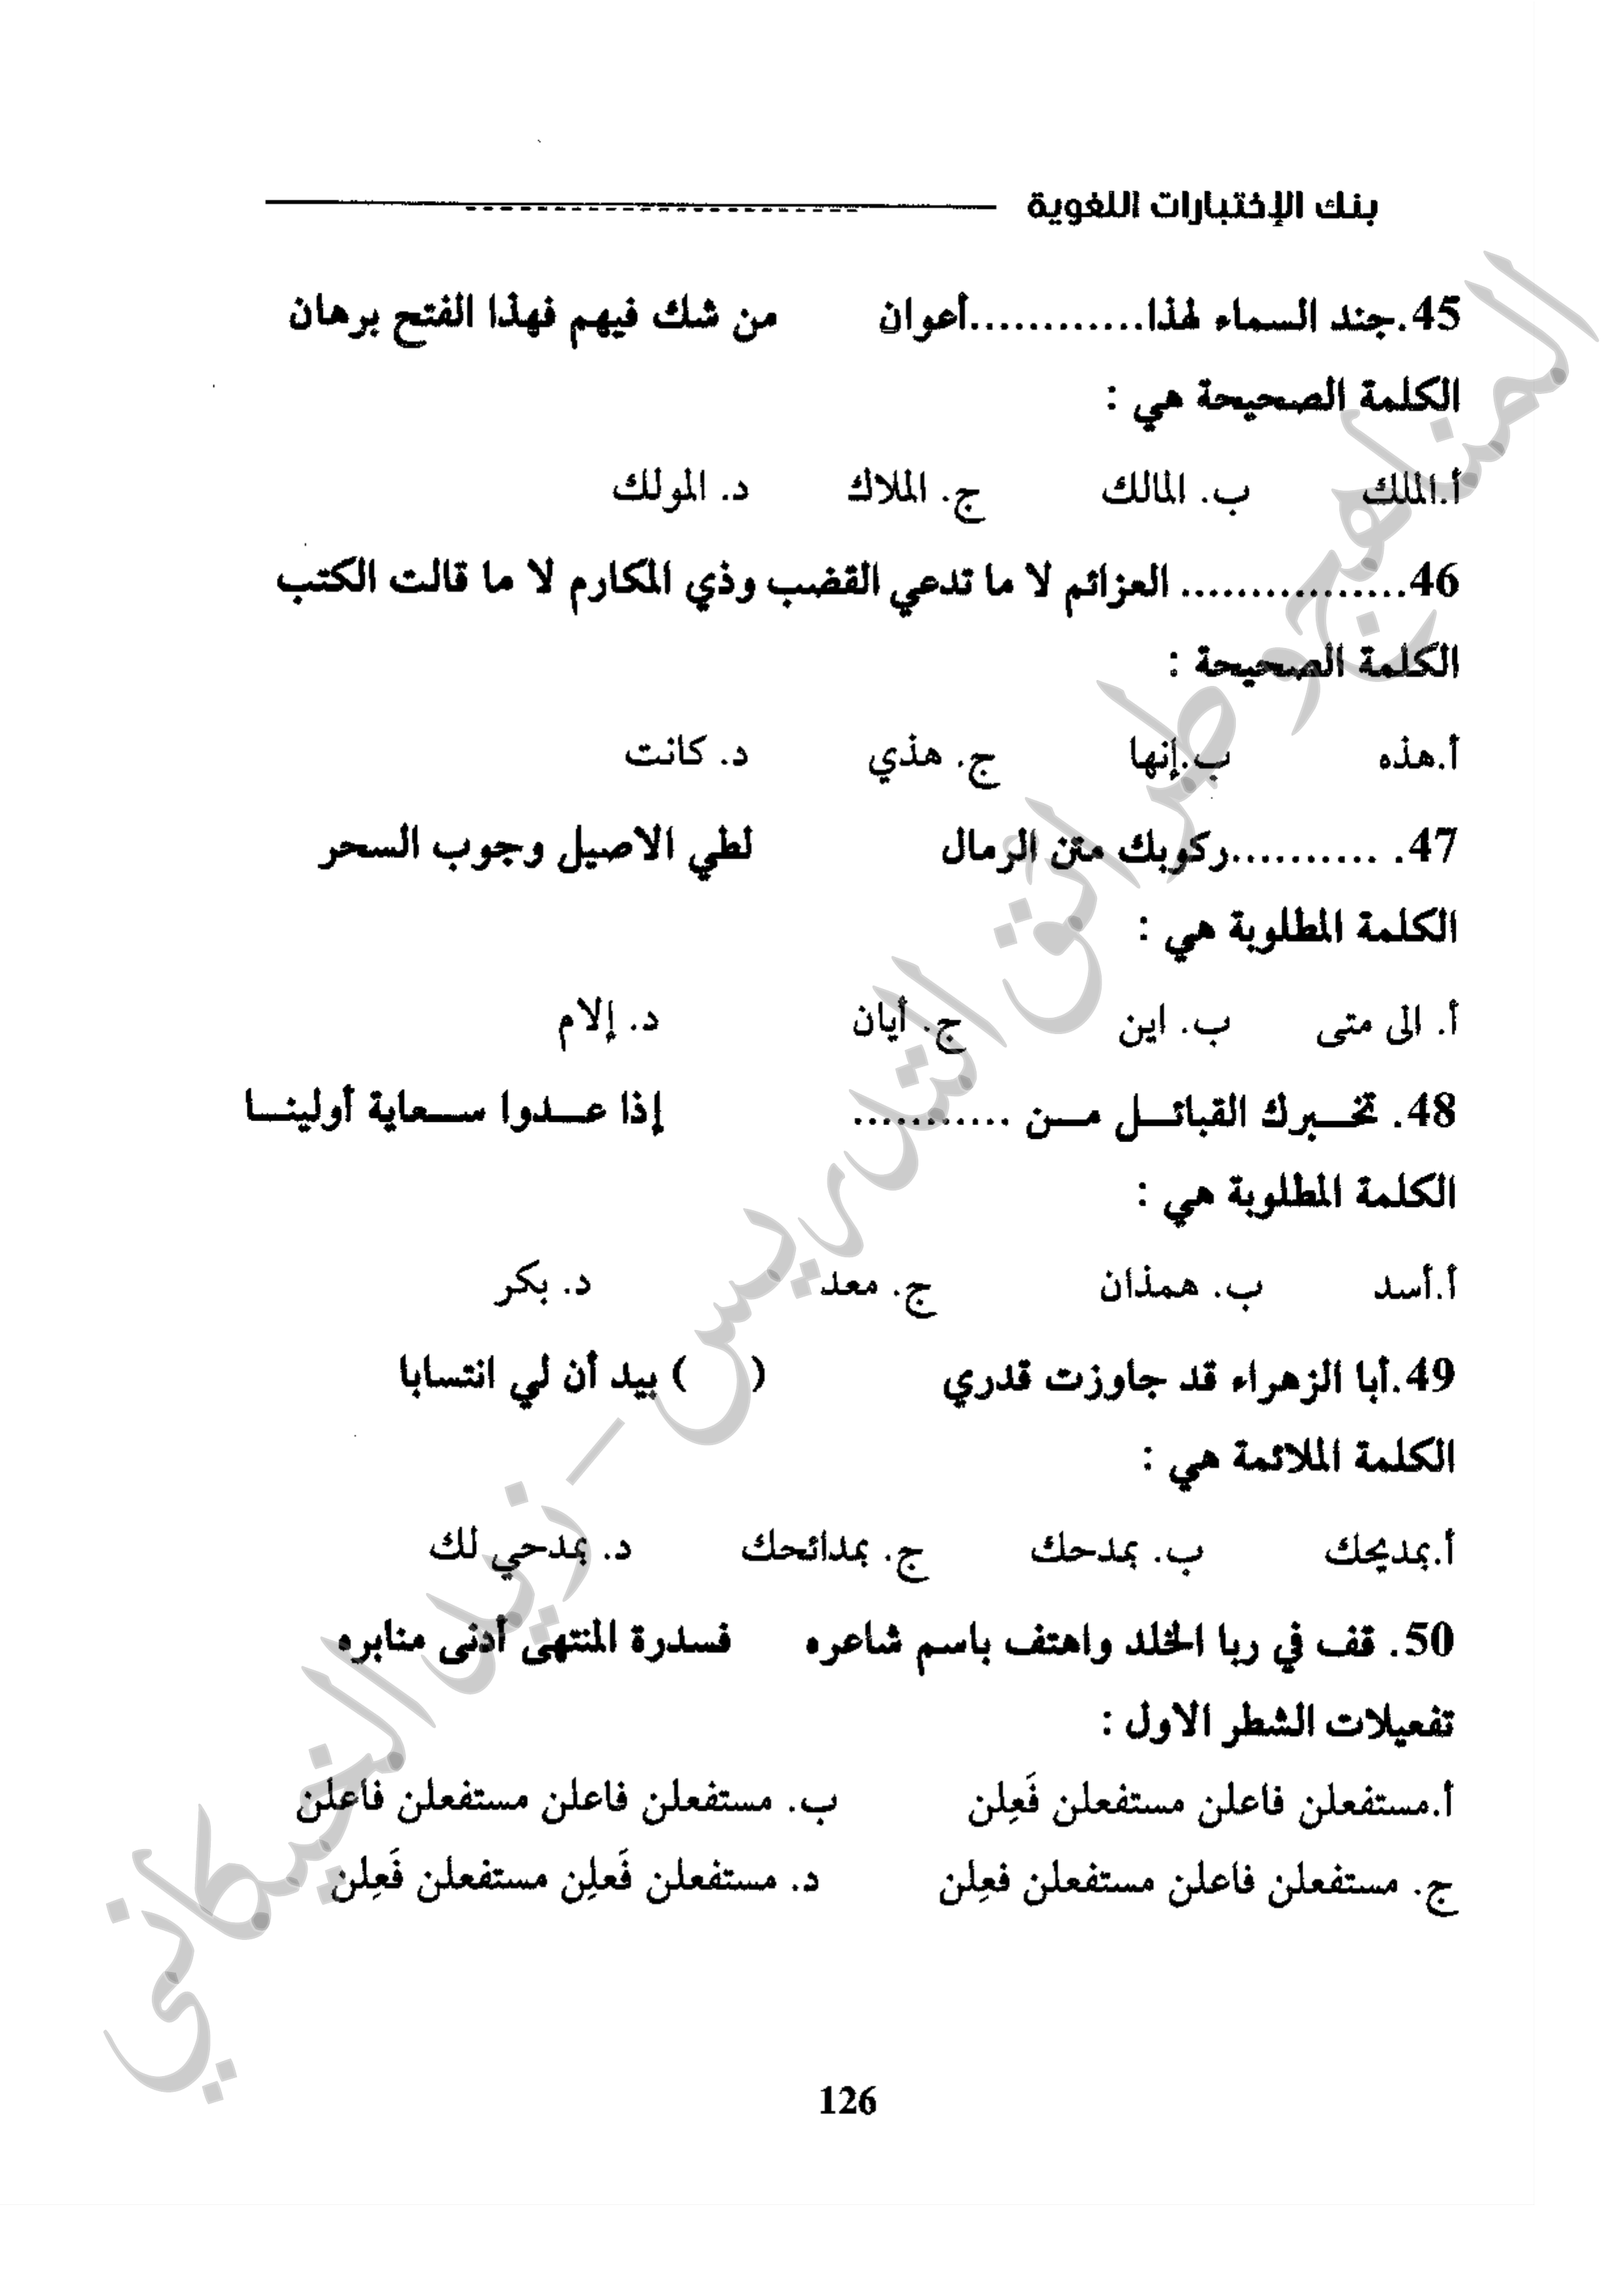 بنك الإختبارات اللغوية
45.جند السماء لهذا............أعوان من شك فيهم فهذا الفتح برهان
الكلمة الصحيحة هي :
أ.الملك ب. المالك ج. الملاك د. المولك
46................. العزائم لا ما تدعي القضب وذي المكارم لا ما قالت الكتب
الكلمة الصحيحة :
أ.هذه ب.إنها ج. هذي د. كانت
47. ..........ركوبك متن الرمال لطي الاصيل وجوب السحر
الكلمة المطلوبة هي :
أ. الى متى ب. اين ج. أيان د. إلام
48. تخـــبرك القبائـــل مـــن ........... إذا عـــدوا ســـعاية أولينـــا
الكلمة المطلوبة هي :
أ.أسد ب. همذان ج. معد د. بكر
49.أبا الزهراء قد جاوزت قدري ( ) بيد أن لي انتسابا
الكلمة الملائمة هي :
أ.بمديحك ب. بمدحك ج. بمدائحك د. بمدحي لك
50. قف في ربا الخلد واهتف باسم شاعره فسدرة المنتهى أدنى منابره
تفعيلات الشطر الاول :
أ.مستفعلن فاعلن مستفعلن فَعِلن ب. مستفعلن فاعلن مستفعلن فاعلن
ج. مستفعلن فاعلن مستفعلن فعِلن د. مستفعلن فَعلِن مستفعلن فَعِلن
126
المناهج وطرائق التدريس - زيد الخيكاني